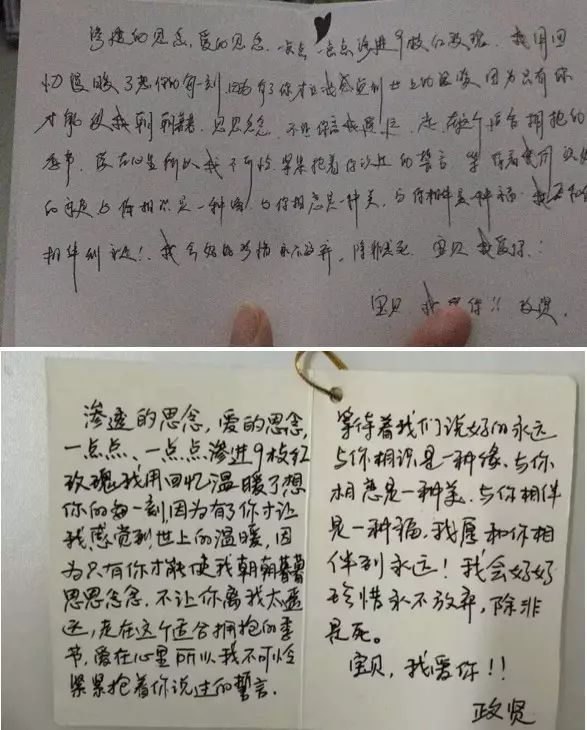 渗透的思念，爱的思念，一点点、一点点渗进9枚红玫瑰。我用回
忆温暖了想你的每一刻，因为有了你才让我感觉到世上的温暖，因为只有你
才能使我朝朝暮暮，思思念念，不让你离我太遥远，走在这个适合拥抱的
季节，爱在心里所以我不可怜，紧紧抱着你说过的誓言，等待着我们说好
的永远与你相识是一种缘，与你相恋是一种美，与你相伴是一种福，我愿和你
相伴到永远！我会好好珍惜永不放弃，除非是死，宝贝我爱你！
宝贝 我爱你！！政贤
渗透的思念，爱的思念，
一点点、一点点渗进9枚红
玫瑰我用回忆温暖了想
你的每一刻，因为有了你才让
我感觉到世上的温暖，因
为只有你才能使我朝朝暮暮
思思念念，不让你离我太遥
远，走在这个适合拥抱的季
节，爱在心里所以我不可怜
紧紧抱着你说过的誓言，
等待着我们说好的永远
与你相识是一种缘、与你
相恋是一种美、与你相伴
是一种福，我愿和你相
伴到永远！我会好好
珍惜永不放弃，除非
是死。
宝贝，我爱你！！
政贤